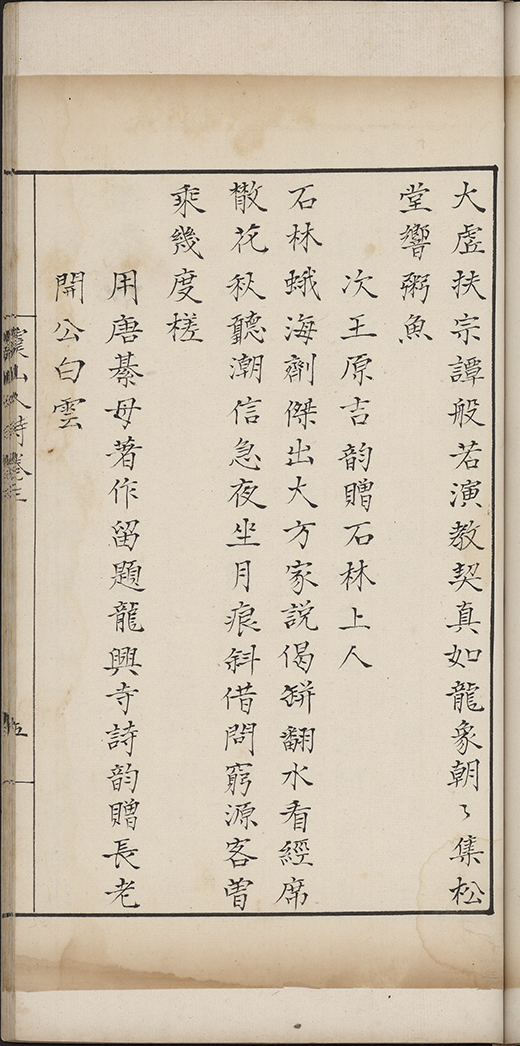 大虛扶宗譚般若演教契真如龍象朝〻集松
堂響粥魚
次王原吉韵贈石林上人
石林蛾海劑傑出大方家說偈缾翻水看經席
散花秋聽潮信急夜坐月痕斜借問窮源客曽
乘幾度槎
用唐綦母著作留題龍興寺詩韵贈長老
開公白雲
山人詩卷
五